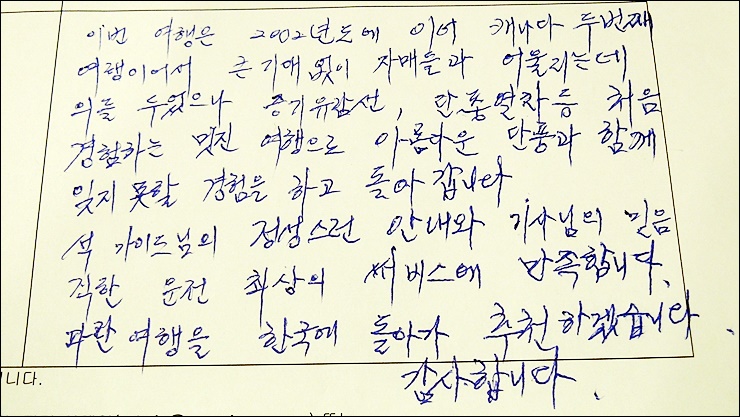 이번 여행은 2002년도에 이어 캐나다 두번째
여행이어서 큰기대 없이 자매들과 어울리는데
의를 두었으나 증기유람선, 단풍열차등 처음
경험하는 멋진 여행으로 아름다운 단풍과 함께
잊지 못할 경험을 하고 돌아 갑니다
석 가이드님의 정성스런 안내와 기사님의 믿음
직한 운전 최상의 써비스에 만족합니다.
파란여행을 한국에 돌아가 추천하겠습니다.
감사합니다.
니다.